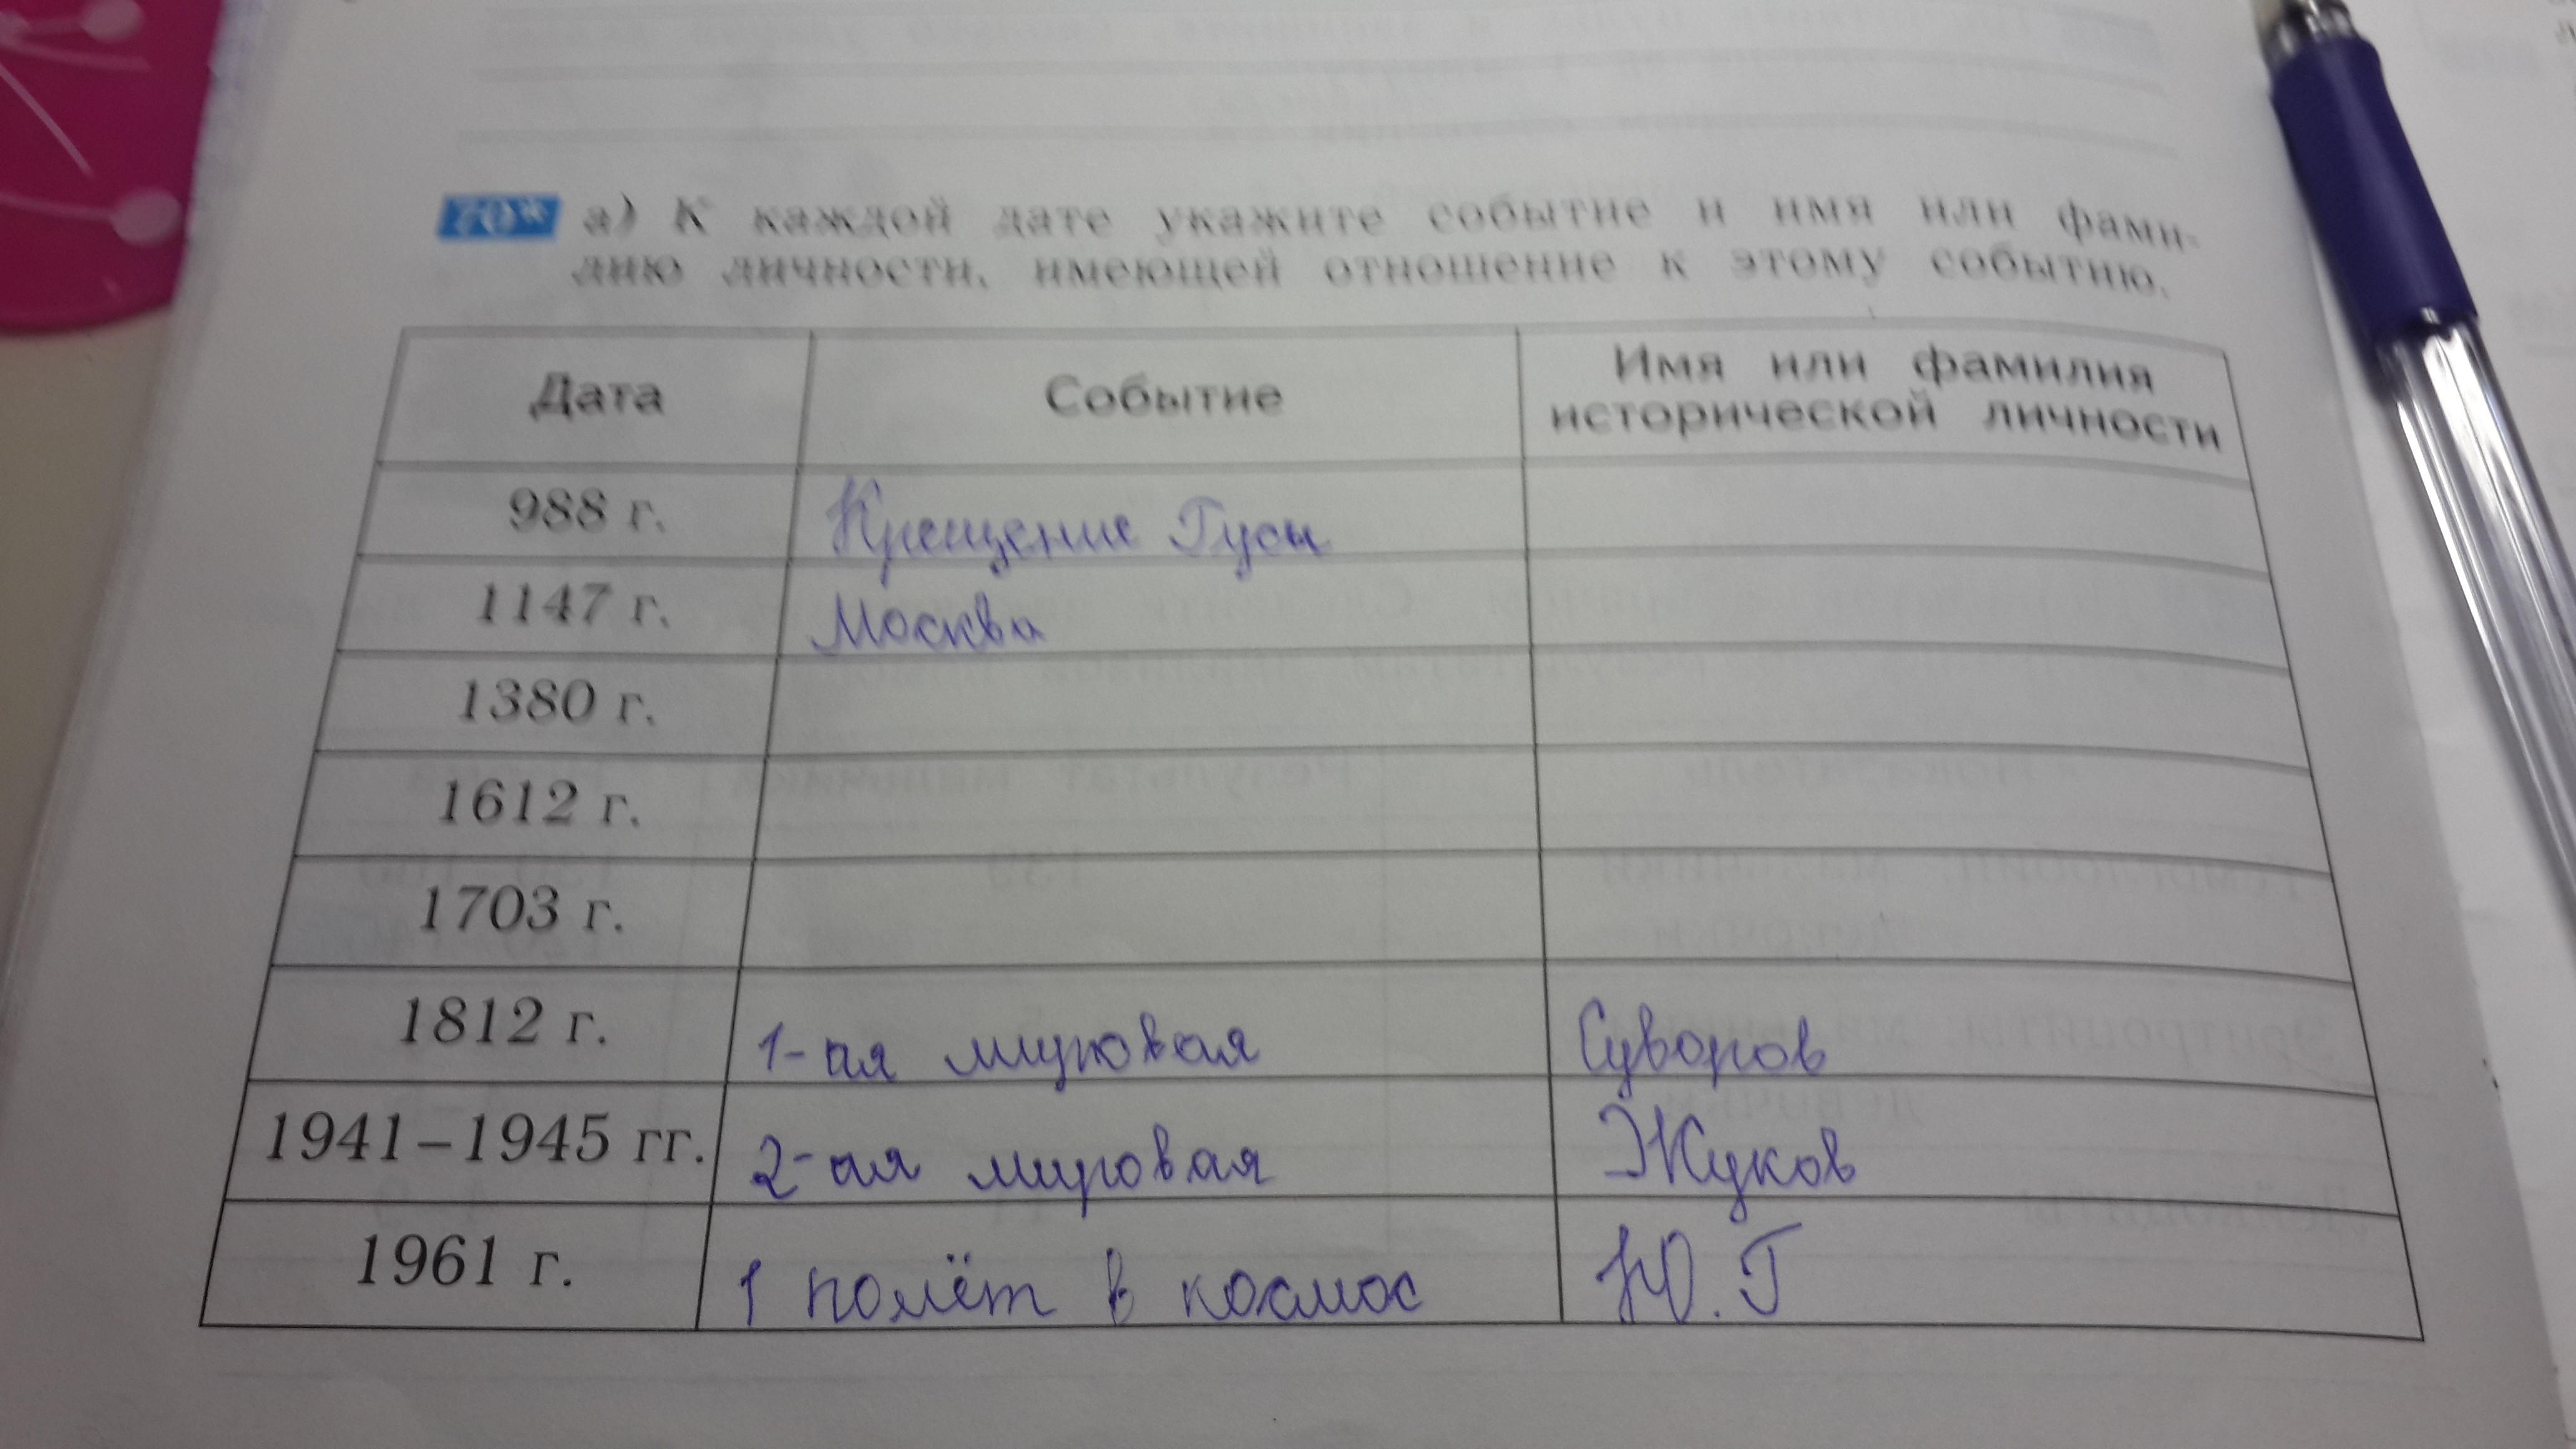 70* а) К каждой дате укажите событие и имя или фами-
лию личности, имеющей отношение к этому событию.
Дата Событие Имя или фамилия
исторической личности
988 г. Крещение Руси
1147 г. Москва
1380 г.
1612 г.
1703 г.
1812 г. 1-ая мировая Суворов
1941–1945 гг. 2-ая мировая Жуков
1961 г. 1 полёт в космос Ю.Г